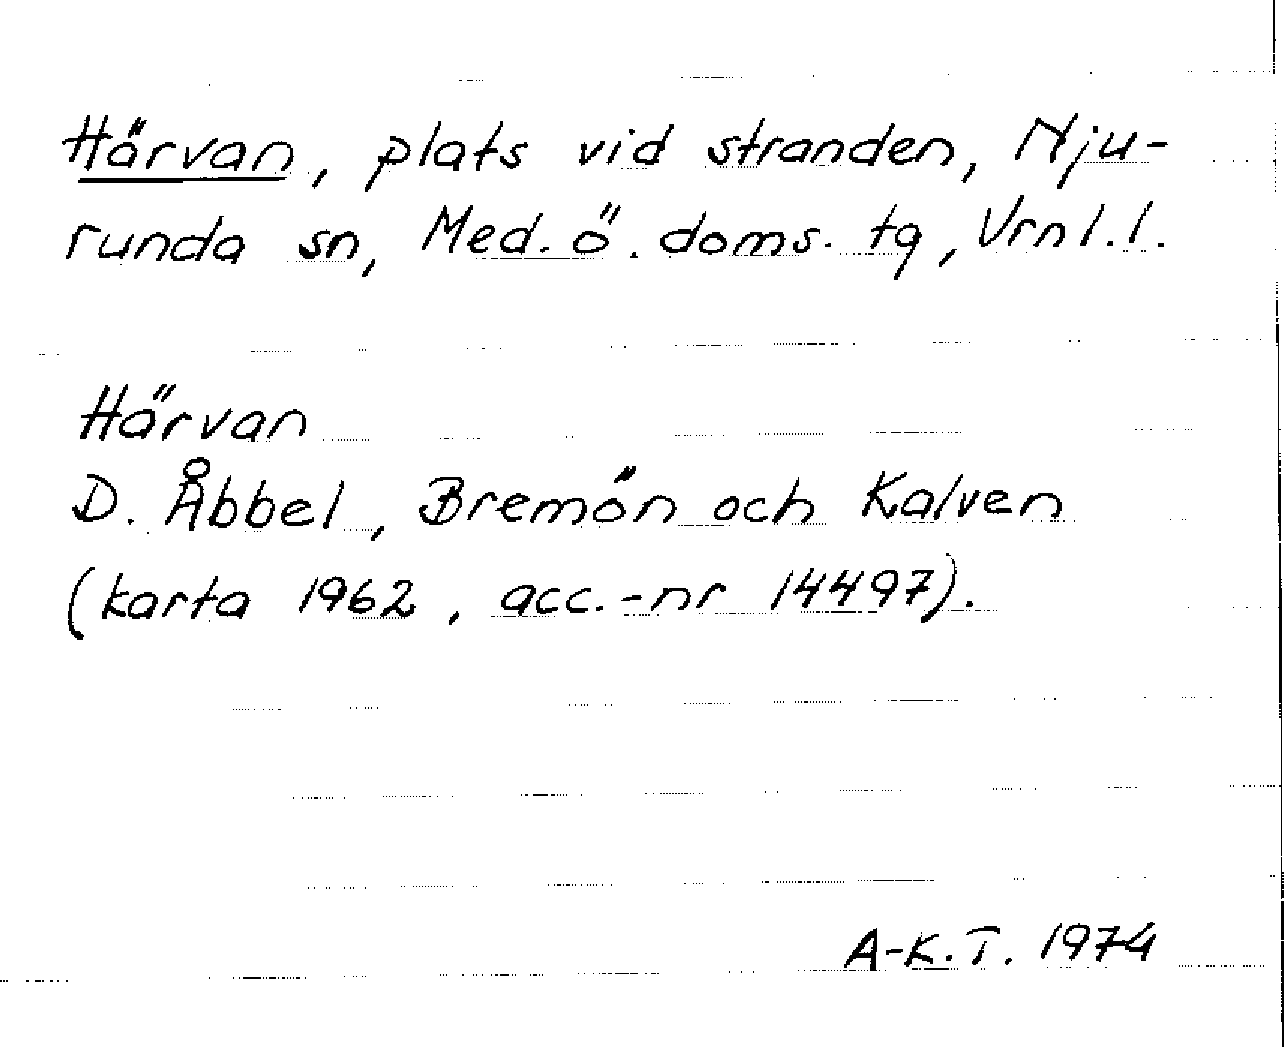 Härvan, plats vid stranden, Nju-
runda sn, Med. ö. doms. tg, Vrnl.l.
Härvan
D. Åbbel, Bremön och Kalven
(karta 1962, acc.-nr 14497).
A-K.T. 1974